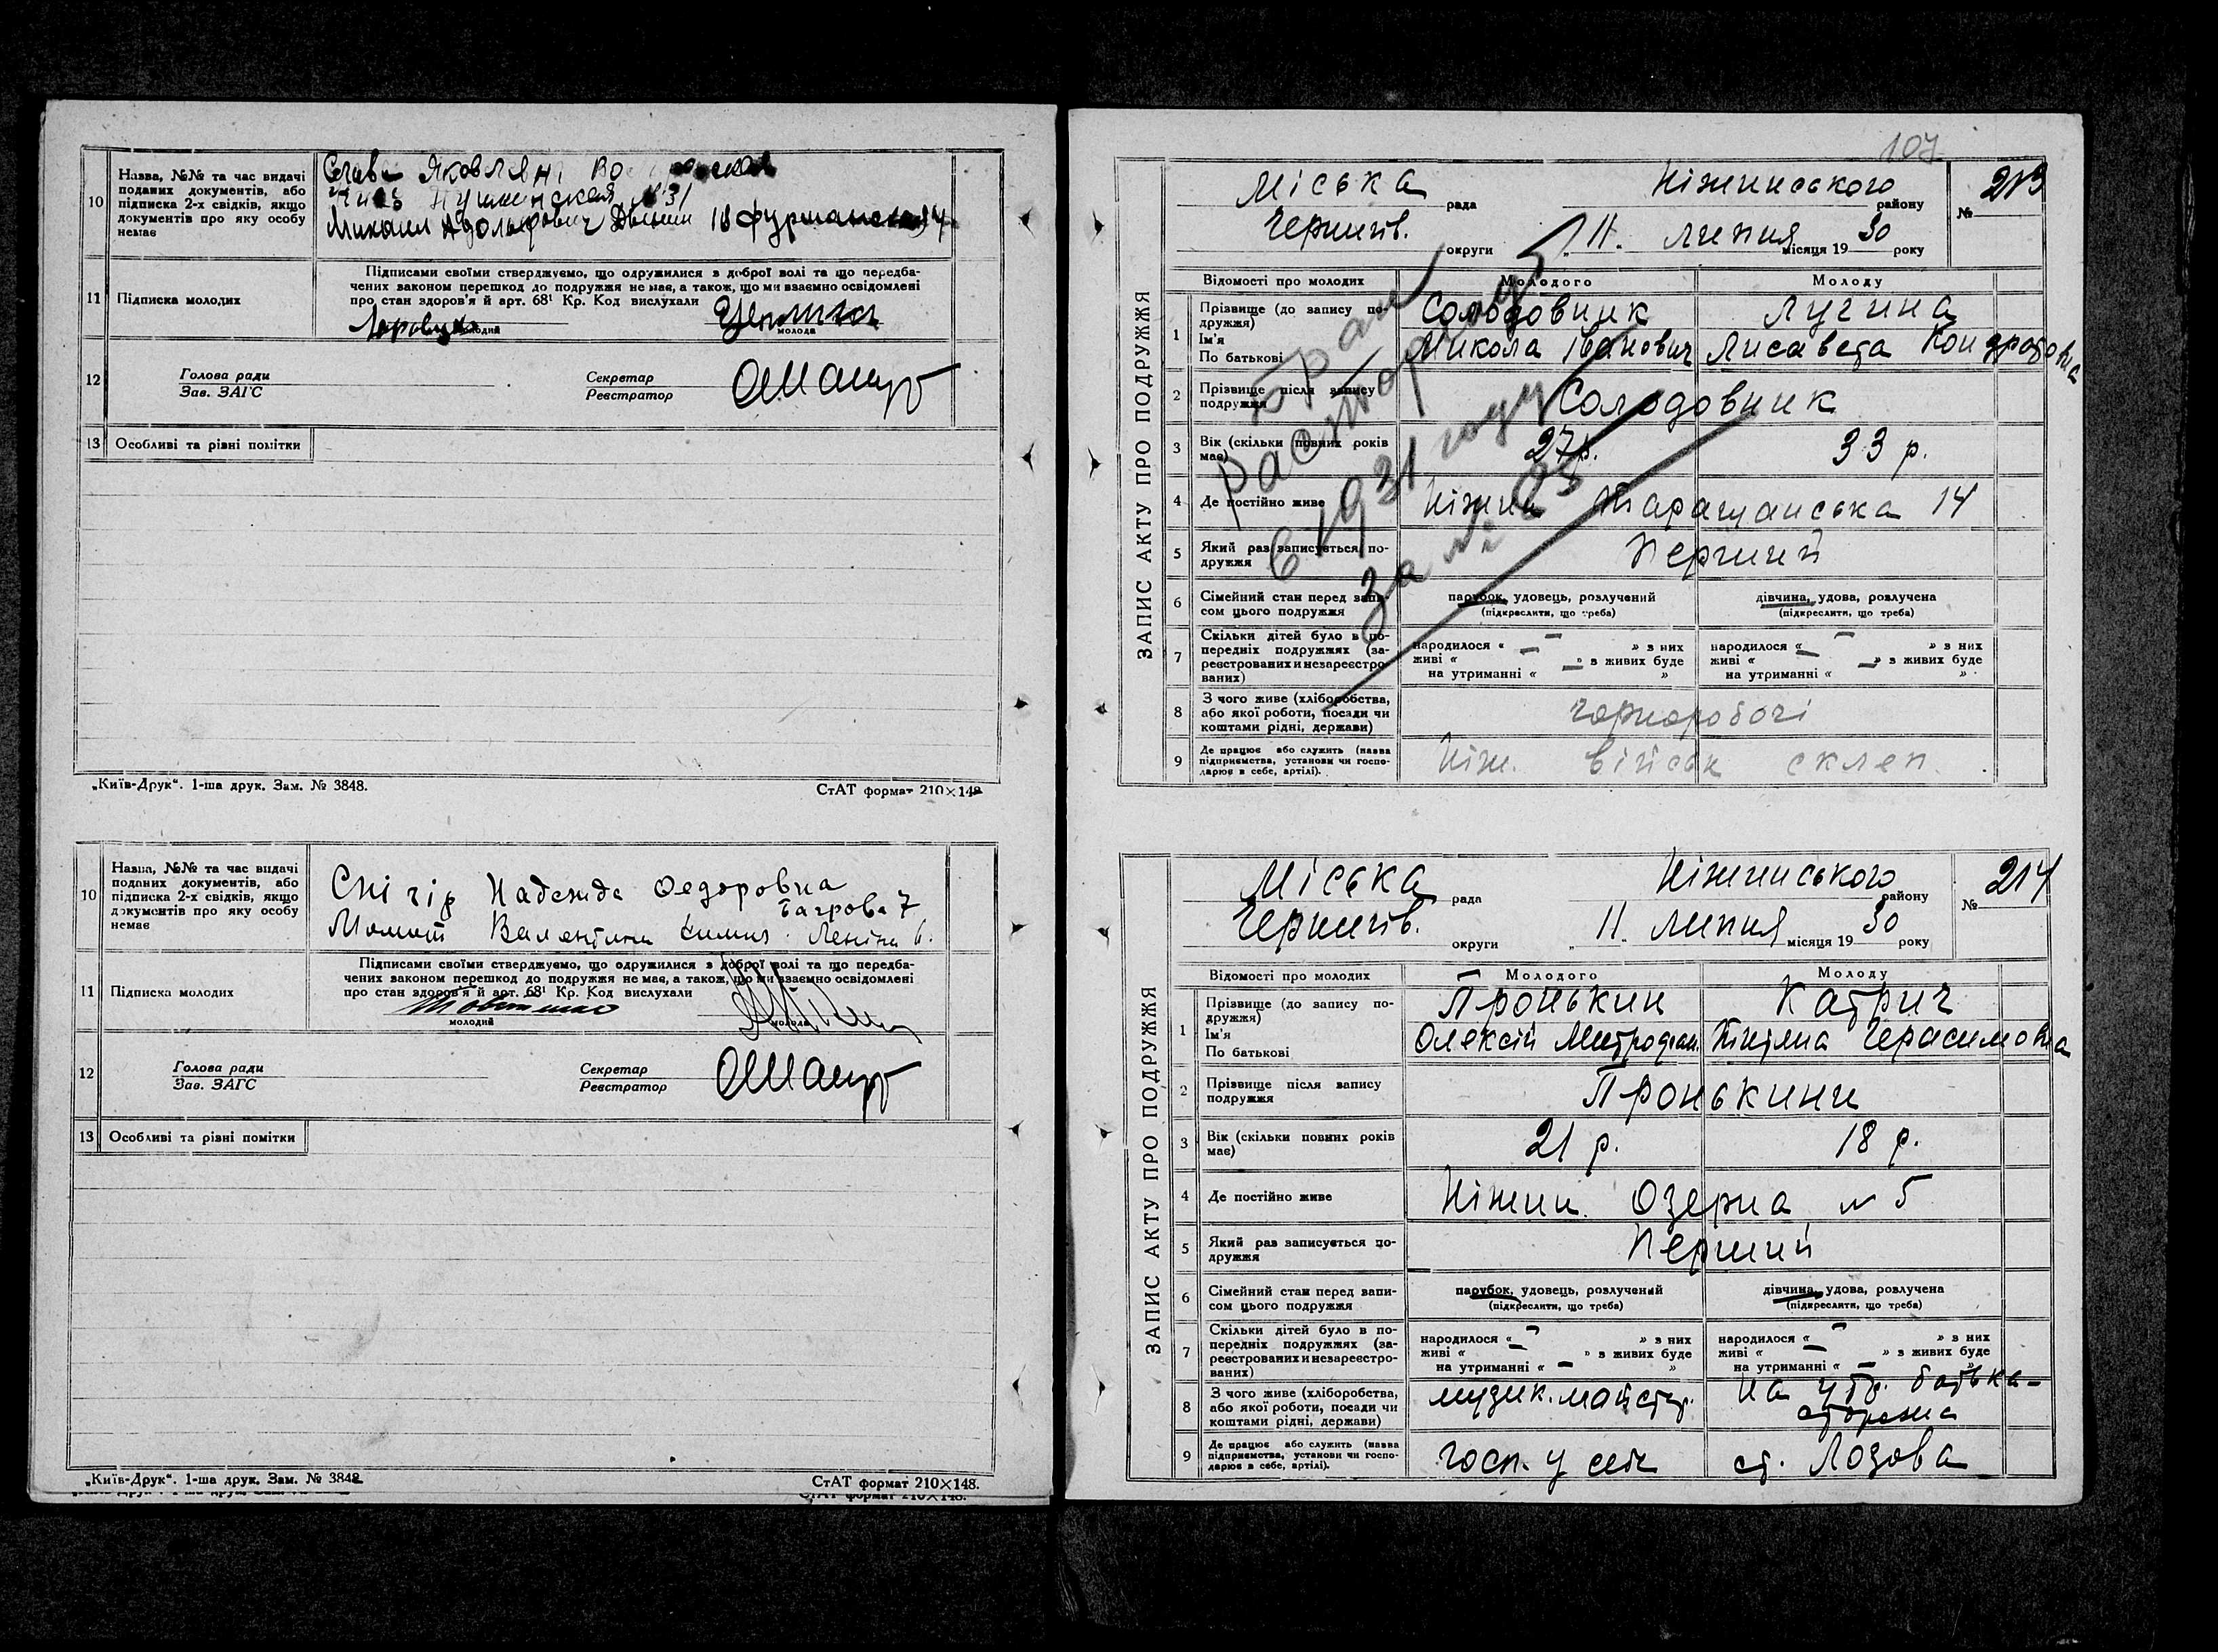 10
Назва, №№ та час видачі
поданих документів, або
підписка 2-х свідків, якщо
документів про яку особу
немає
Яковлян
Пушкинская №31
Михаил Адольфович 18
11
Підписка молодих
Підписами своїми стверджуємо, що одружилися з доброї волі та що передба-
чених законом перешкод до подружжя не має, а також, що ми взаємно освідомлені
про стан здоров'я й арт. 68¹ Кр. Код вислухали
молодий
молода
12
Голова ради
Зав. ЗАГС
Секретар
Реєстратор
13
Особливі та рівні помітки
„Київ-Друк“. 1-ша друк. Зам. № 3848.
СтАТ формат 210×148
10
Назва, №№ та час видачі
поданих документів, або
підписка 2-х свідків, якщо
документів про яку особу
немає
Снігір Надежда Федоровна
Багрова 7
Момот Валентина Леніна 6.
11
Підписка молодих
Підписами своїми стверджуємо, що одружилися з доброї волі та що передба-
чених законом перешкод до подружжя не має, а також, що ми взаємно освідомлені
про стан здоров'я й арт. 68¹ Кр. Код вислухали
молодий
молода
12
Голова ради
Зав. ЗАГС
Секретар
Реєстратор
13
Особливі та рівні помітки
„Київ-Друк“. 1-ша друк. Зам. № 3848
СтАТ формат 210×148.
107
ЗАПИС АКТУ ПРО ПОДРУЖЖЯ
Міська рада Ніжинського району № 213
Чернигів. округи „11„ липня місяця 1930 року
Брак
расторгнут
в 1931 году
за № 83
Відомості про молодих
Молодого
Молоду
1
Прізвище (до запису по-
дружжя)
Ім'я
По батькові
Солодовник
Микола Іванович
Лугина
Лисавета Кондратовна
2
Прізвище після запису
подружжя
Солодовник
3
Вік (скільки повних років
має)
27р.
33 р.
4
Де постійно живе
Ніжин Таращанська 14
5
Який раз записується по-
дружжя
Перший
6
Сімейний стан перед запи-
сом цього подружжя
парубок, удовець, розлучений
(підкреслити, що треба)
дівчина, удова, розлучена
(підкреслити, що треба)
7
Скільки дітей було в по-
передніх подружжях (за-
реєстрованих и незареєстро-
ваних)
народилося « – » з них
живі « – » з живих буде
на утриманні « – »
народилося « – » з них
живі « – » з живих буде
на утриманні « – »
8
З чого живе (хліборобства,
або якої роботи, посади чи
коштами рідні, держави)
чорноробочі
9
Де працює або служить (назва
підприємства, установи чи госпо-
дарює в себе, артілі).
Ніж. військ склеп.
ЗАПИС АКТУ ПРО ПОДРУЖЖЯ
Міська рада Ніжинського району № 214
Чернигів. округи „11„ липня місяця 1930 року
Відомості про молодих
Молодого
Молоду
1
Прізвище (до запису по-
дружжя)
Ім'я
По батькові
Пронькин
Олексій Митрофан.
Катрич
Герасимовна
2
Прізвище після запису
подружжя
Пронькини
3
Вік (скільки повних років
має)
21 р.
18 р.
4
Де постійно живе
Ніжин. Озерна № 5
5
Який раз записується по-
дружжя
Перший
6
Сімейний стан перед запи-
сом цього подружжя
парубок, удовець, розлучений
(підкреслити, що треба)
дівчина, удова, розлучена
(підкреслити, що треба)
7
Скільки дітей було в по-
передніх подружжях (за-
реєстрованих и незареєстро-
ваних)
народилося « – » з них
живі « – » з живих буде
на утриманні « – »
народилося « – » з них
живі « – » з живих буде
на утриманні « – »
8
З чого живе (хліборобства,
або якої роботи, посади чи
коштами рідні, держави)
музик. майстр.
на утр. батька-
сторожа
9
Де працює або служить (назва
підприємства, установи чи госпо-
дарює в себе, артілі).
госп. у себе
ст. Лозова